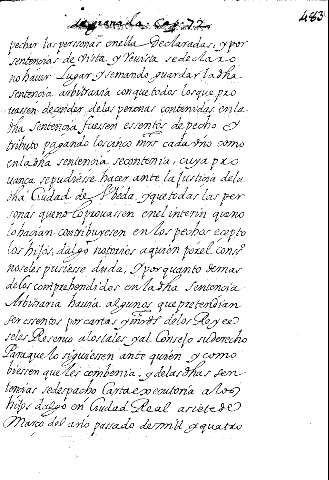 483
pechar las personas enella Declaradas, y por
sentencias de Vista, y Revista se declaro
no hauer Lugar y semando guardar la dha
sentencia arbitraria con que todos los que pro
uassen decender de las personas contenidas en la
dha sentencia fuessen essentos de pecho y
tributo pagando los cinco mrs cada año como
en la dha sentencia se contenia, cuya pro
uanca se pudiesse hacer ante la Justicia de la
dha Ciudad de Vbeda, y que todas las per
sonas que no lo prouassen en el interin que no
lo hacian contribuiesen en los pechos exepto
los hijos dalgo notorios a quien por el consº
no se les pusiesse duda, y por quanto demas
de los comprehendidos en la dha sentencia
Arbitraria hauia algunos que pretendian
ser essentos por cartas y mrds de los Reyes
se les Reseruo a los tales y al Consejo su derecho
Para que lo siguiessen ante quien y como
biessen que les combenia, y de las dhas sen
tencias se despacho Carta executoria a los
hijos dalgo en Ciudad Real a siete de
Março del año passado de mil y quatro